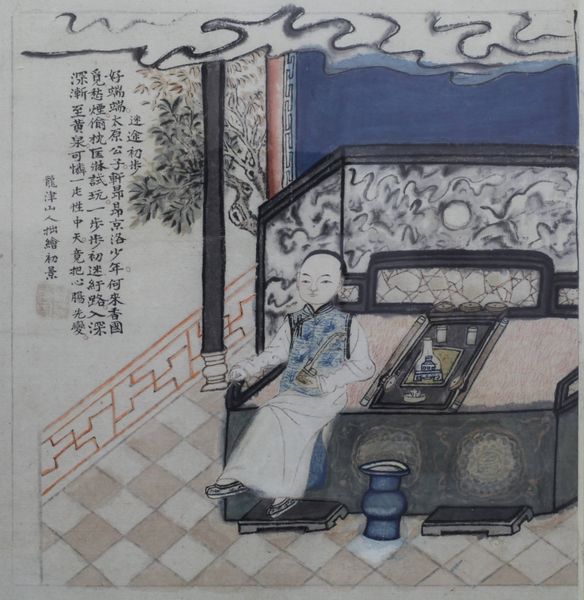 迷途初步
好端端太原公子軒昂昂京洛少年何來香國
覓愁煙偷枕匡牀試玩一步步初迷紆路入深
深漸至黃泉可憐一走性中天竟把心腸先變
龍津山人拙繪初景